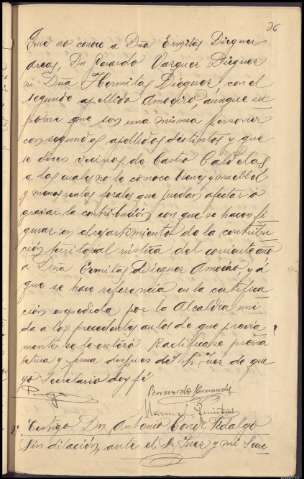 26
Que no conoce a Dña Ermitas Dieguez
Areas, Dn Gerardo Vazquez Dieguez
ni Dña Hermitas Dieguez, con el
segundo apellido Amoeiro aunque su
pobre que son una misma persona
con segundos apellidos distintos y que
se dicen vecinos de Castro Caldelas
a los cuales no le conoce bienes muebles
y menos rentas forales que puedan afectar a
gravar la contribución con que se hacen fi
guran en el repartimiento de la contribu
ción territorial rústica del corriente año
a Dña Ermitas Dieguez Amoeiro, y á
que se hace referencia en la certifica
ción espedida por la Alcaldía, uni
da a los precedentes autos de que previa
mente se le enteró. Ratificase previa
lectura y firma despues del Sr. Juez de que
yo Secretario doy fé
Bernardo Fernandez
Testigo Dn Antonio Hidalgo
Sin dilación, ante el Sr. Juez y mi Secre